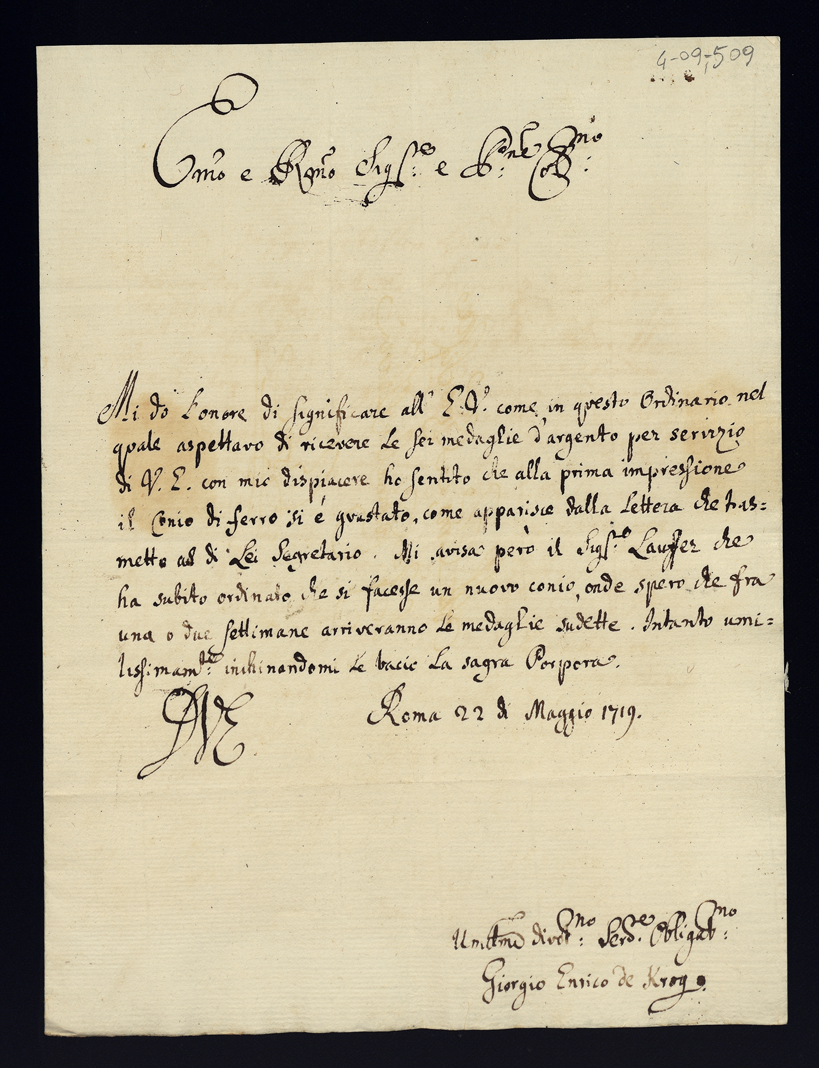 4-09-509
Emo e Rmo Sigre e Pne Colmo:
Mi do l'onore di significare all' E.V. come in questo Ordinario nel
quale aspettavo di ricevere le sei medaglie d'argento per servizio
di V. E. con mio dispiacere ho sentito che alla prima impressione
il Conio di ferro si è guastato, come apparisce dalla lettera che tras=
metto al di Lei Segretario. Mi avisa però il Sigre Lauffer che
ha subito ordinato che si facesse un nuovo conio, onde spero che fra
una o due settimane arriveranno le medaglie sudette. Intanto umi=
lissimamte inchinandomi le bacio la sagra Porpora.
DVE
Roma 22 di Maggio 1719.
divotmo: Serre Obligatmo:
Giorgio Enrico de Krog